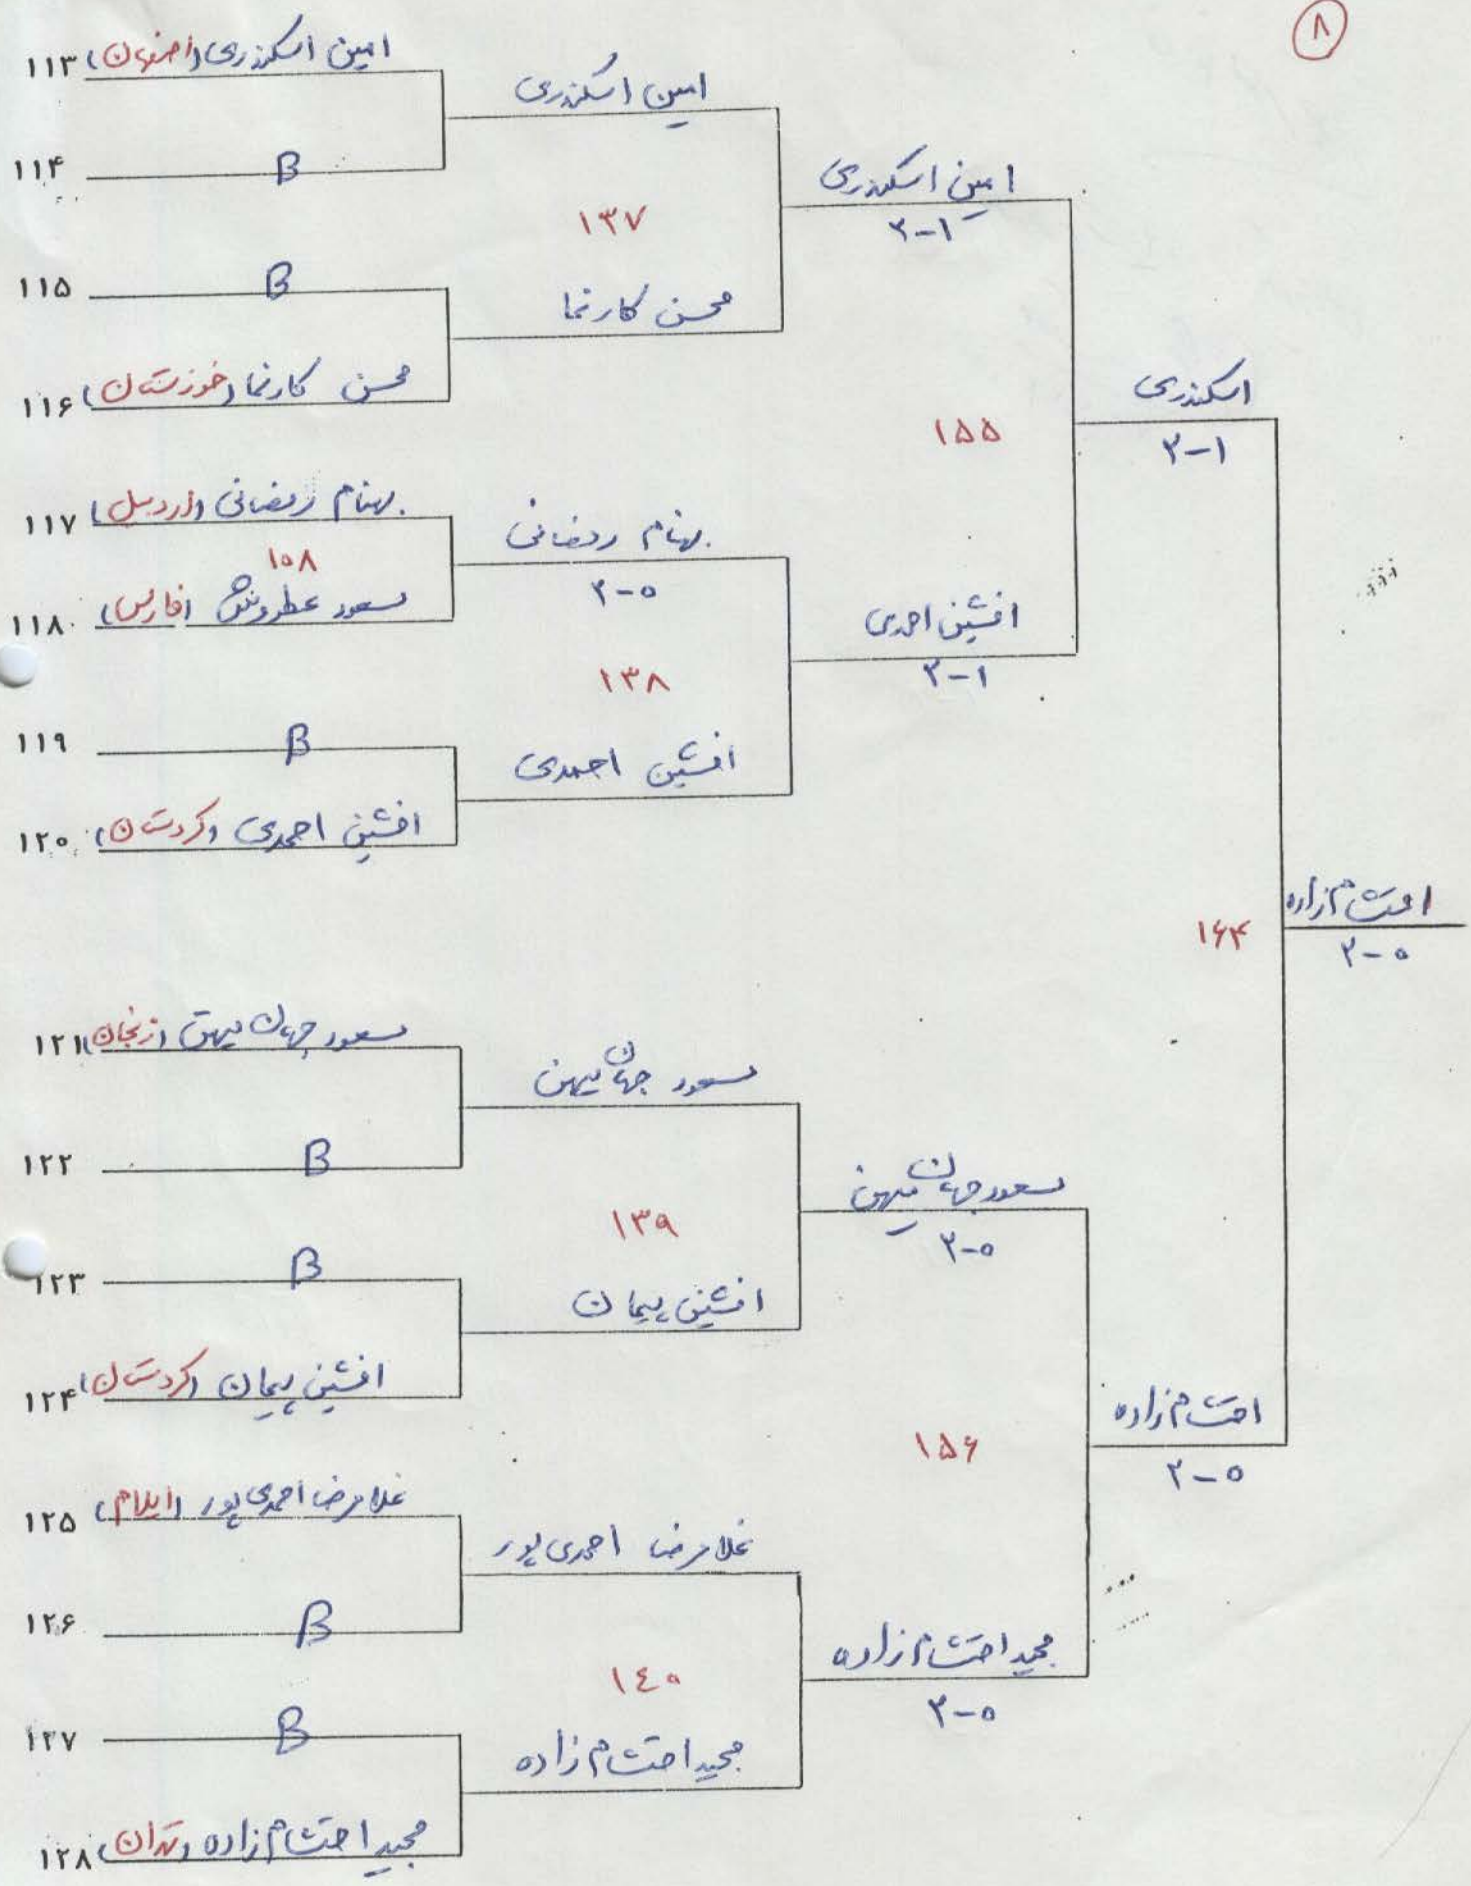 ۸
۱۱۳ امین اسکندری (اصفهان)
۱۱۴ B
۱۱۵ B
۱۱۶ محسن کارنما (خوزستان)
۱۱۷ بهنام رمضانی (اردبیل)
۱۰۸
۱۱۸ مسعود عطروش (فارس)
۱۱۹ B
۱۲۰ افشین احمدی (کردستان)
۱۲۱ مسعود جهان میهن (زنجان)
۱۲۲ B
۱۲۳ B
۱۲۴ افشین پیمان (کردستان)
۱۲۵ غلامرضا احمدی پور (ایلام)
۱۲۶ B
۱۲۷ B
۱۲۸ مجید احتشام زاده (تهران)
امین اسکندری
۱۳۷
محسن کارنما
بهنام رمضانی
۲-۰
۱۳۸
افشین احمدی
مسعود جهان میهن
۱۳۹
افشین پیمان
غلامرضا احمدی پور
۱۴۰
مجید احتشام زاده
امین اسکندری
۲-۱
۱۵۵
افشین احمدی
۲-۱
مسعود جهان میهن
۲-۰
۱۵۶
مجید احتشام زاده
۲-۰
اسکندری
۲-۱
۱۶۴
احتشام زاده
۲-۰
احتشام زاده
۲-۰